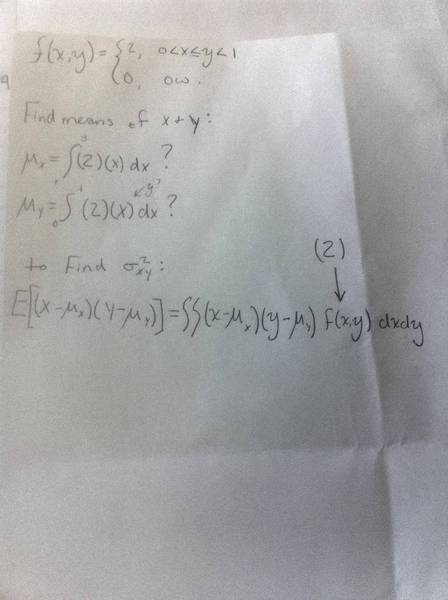 f(x,y) = { 2, 0<x≤y<1
0, ow.
Find means of x + y:
μx = ∫ y (2)(x) dx ?
μY = ∫ 0 1 (2)(x) dx ? ↙y?
to Find σ²xy:
(2)
↓
E[(X-μx)(Y-μY)] = ∫∫(x-μx)(y-μY) f(x,y) dxdy